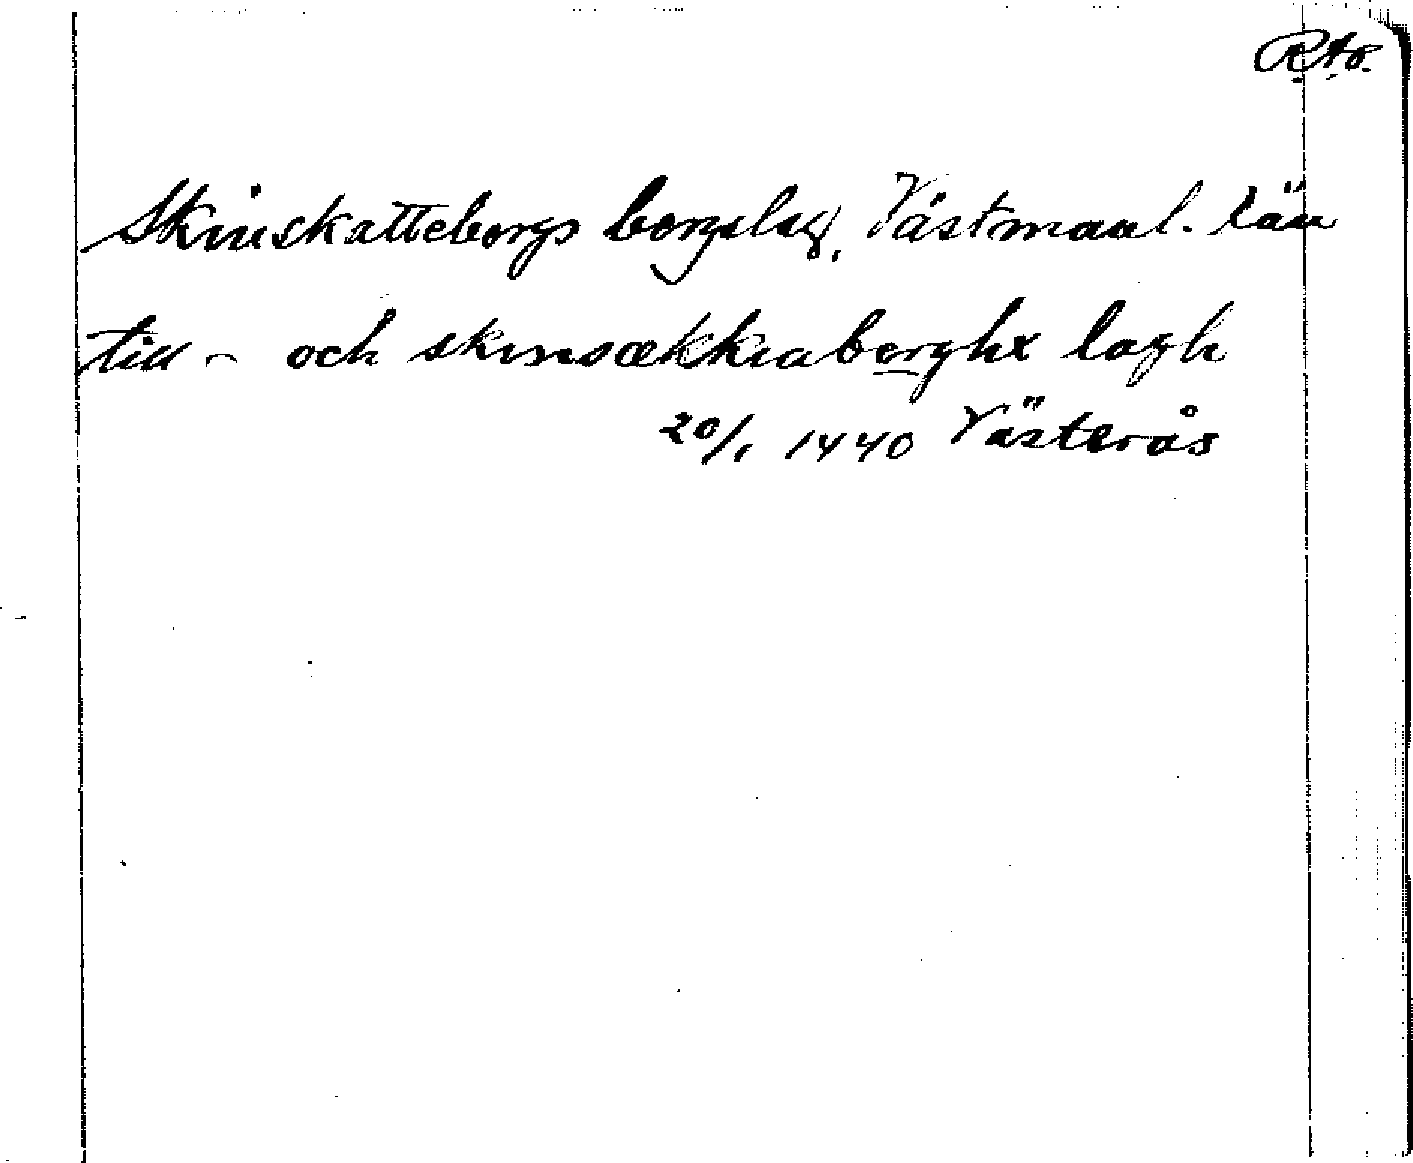 R.A.P.
Skinskattebergs bergslag, Västmanl. län
till - och skinsækkiaberghx lagh
20/1 1440 Västerås